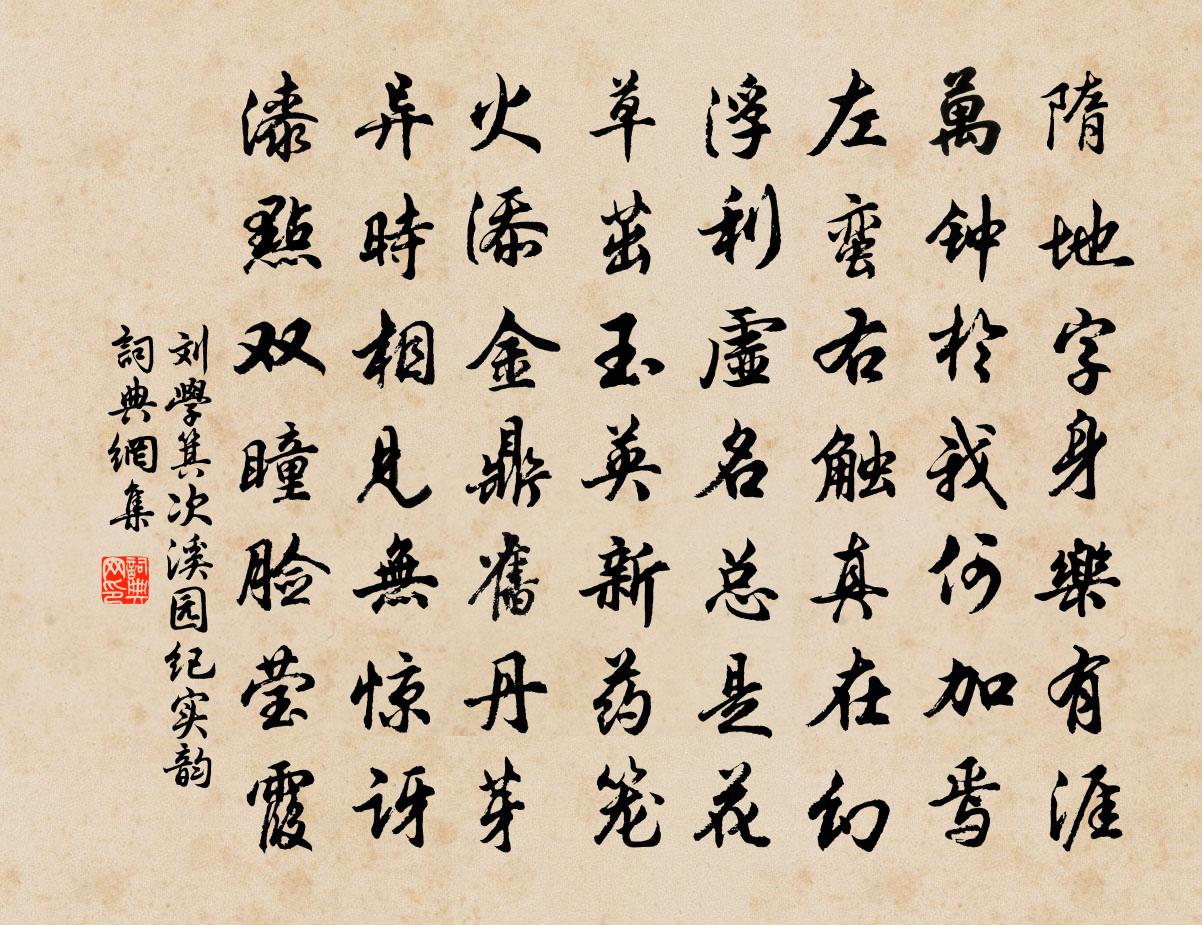 隋地字身樂有涯
萬钟於我何加焉
左蛮右触真在幻
浮利虚名总是花
草茁玉英新药笼
火添金鼎舊丹芽
异時相見無惊讶
漆點双瞳脸莹霞
刘學箕次溪园纪实韵
詞典網集
詞典网印